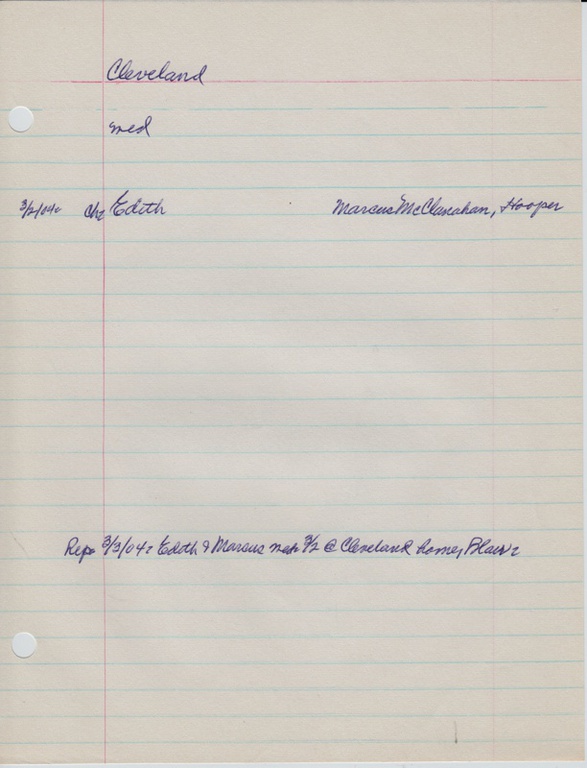 Cleveland
med
3/2/04 Chr Edith Marcus McClanahan, Hooper
Rep 3/3/04: Edith & Marcus mar 3/2 @ Cleveland home, Blair